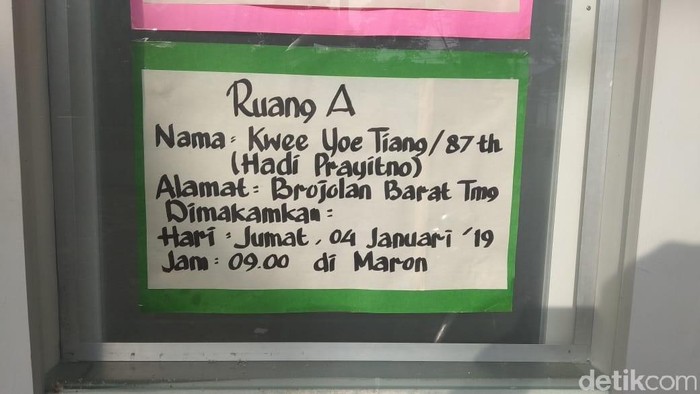 Ruang A
Nama : Kwee Yoe Tiang/87th
(Hadi Prayitno)
Alamat : Brojolan Barat Tmg
Dimakamkan :
Hari : Jumat, 04 Januari '19
Jam : 09.00 di Maron
detikcom